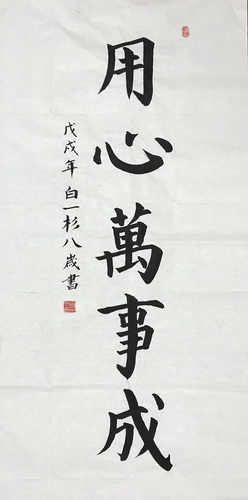 用心萬事成
戊戌年白一杉八歲書